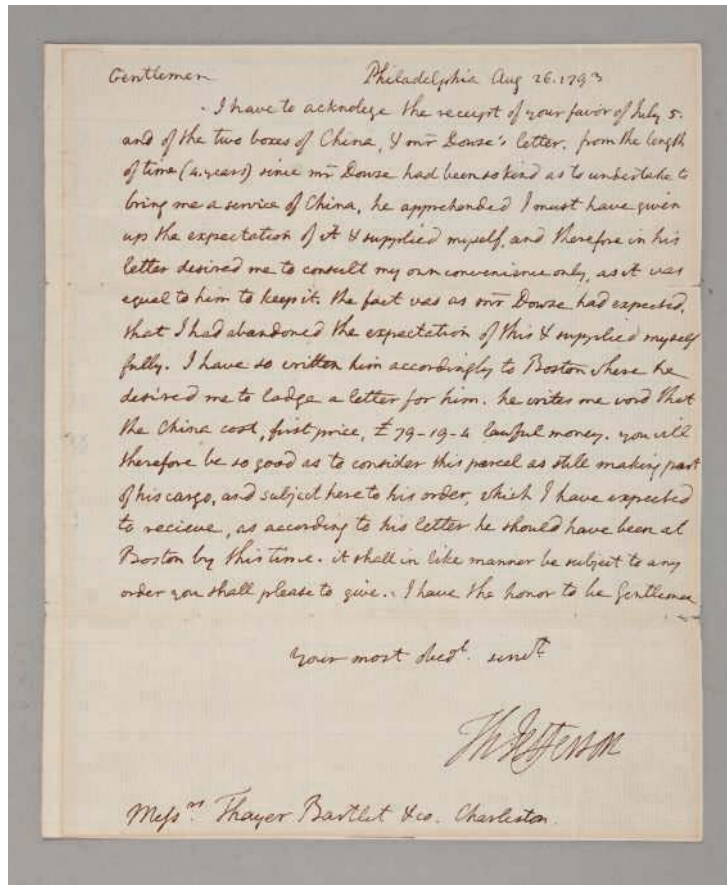 Gentlemen Philadelphia Aug 26. 1793
I have to acknolege the receipt of your favor of July 5.
and of the two boxes of China, & mr Dowse's letter. from the length
of time (4. years) since mr Dowse had been so kind as to undertake to
bring me a service of China, he apprehended I must have given
up the expectation of it & supplied myself, and therefore in his
letter desired me to consult my own convenience only, as it was
equal to him to keep it. the fact was as mr Dowse had expected,
that I had abandoned the expectation of this & supplied myself
fully. I have so written him accordingly to Boston where he
desired me to lodge a letter for him. he writes me word that
the China cost, first price, £79-19-4 lawful money. you will
therefore be so good as to consider this parcel as still making part
of his cargo, and subject here to his order, which I have expected
to recieve, as according to his letter he should have been at
Boston by this time. it shall in like manner be subject to any
order you shall please to give. I have the honor to be Gentlemen
Your most obedt. servt.
Th Jefferson
Messrs. Thayer Bartlet & co. Charleston.